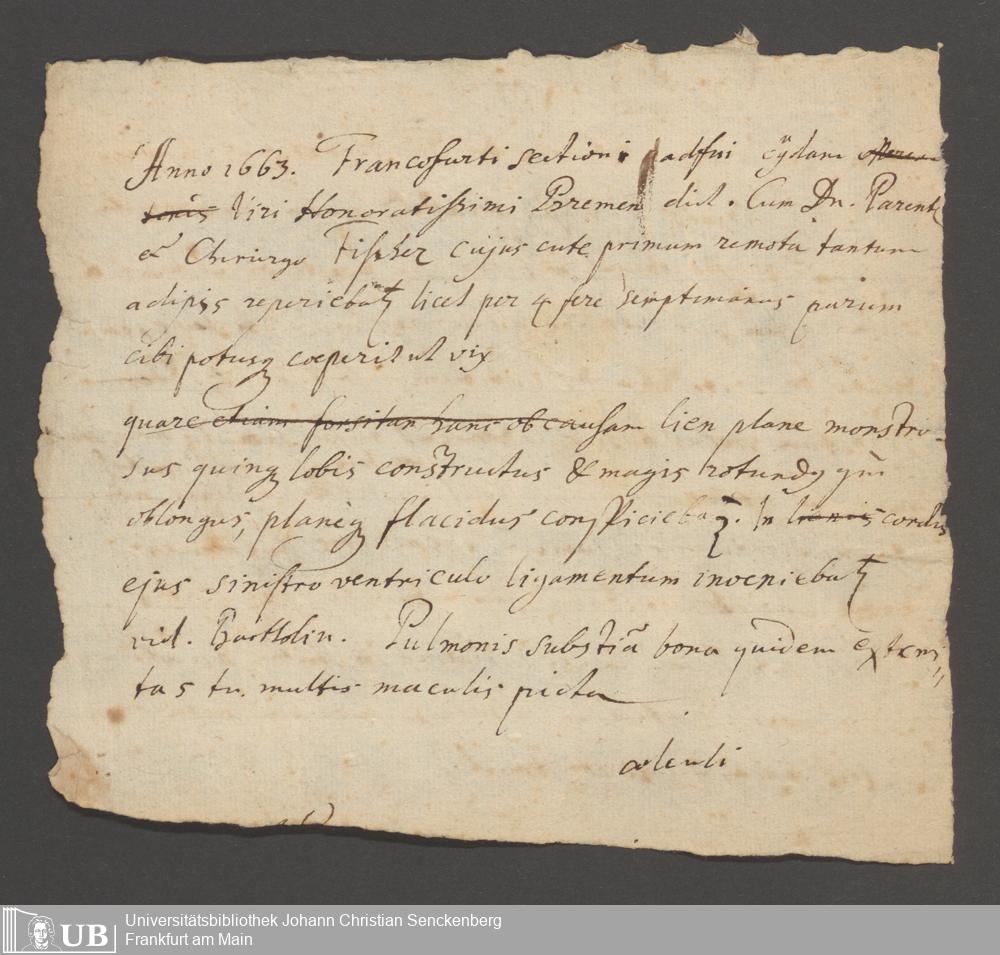 Anno 1663. Francofurti sectioni adfui cÿdam
tonis Viri Honoratissimi Bremen dict. Cum Dn. Parente
et Chirurgo Fischer cujus cute primum remota tantum
adipis reperiebatr licet per 4 fere semptimanas parum
cibi potusq coeperit ut vix
quare etiam forsitan hanc ob causam lien plane monstro-
sus quinq lobis constructus & magis rotundq qm
oblongus, planèq flacidus conspiciebatr. In lienis cordis
ejus sinistro ventriculo ligamentum inveniebatr
vid. Bartholin. Pulmonis substia bona quidem extremi
tas tn. multis maculis picta
calculi
UB
Universitätsbibliothek Johann Christian Senckenberg
Frankfurt am Main